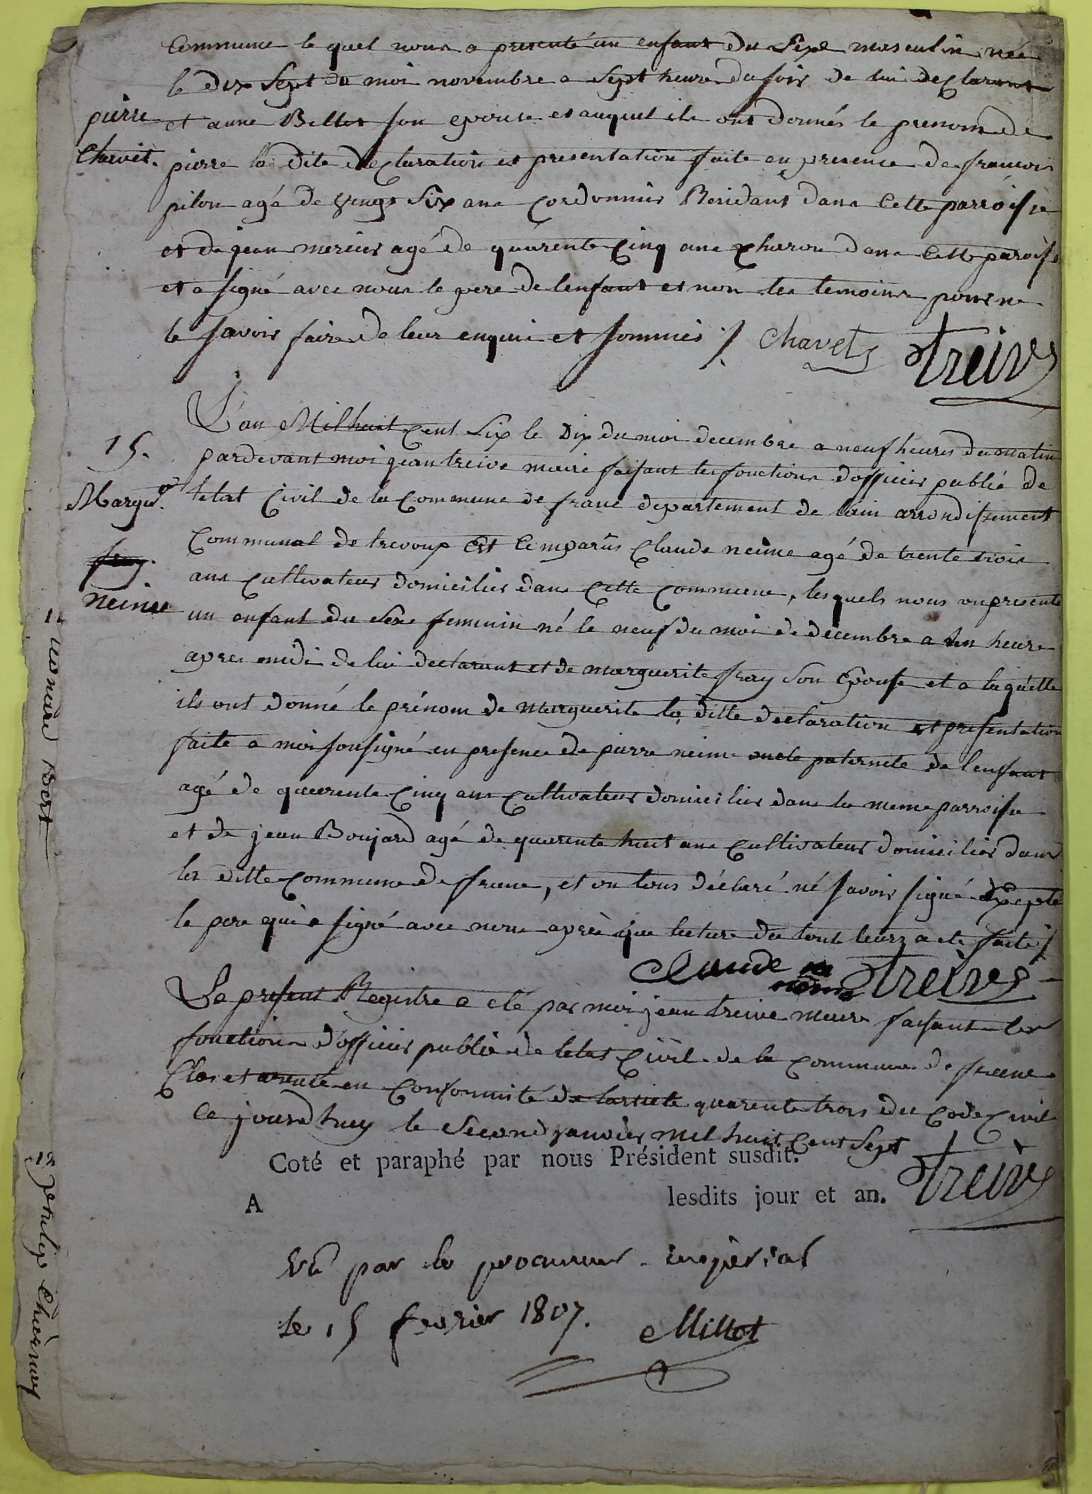 Commune le quel nous a presenté un enfant du Sexe masculin née
le dix Sept du moi novembre a Sept heure du soir de lui declarant
pierre
Chavet.
et anne Billot son epouse et auquel ils ont donnés le prenom de
pierre la dite declaration et presentation faite en presence de francois
pilon agé de vingt Six ans Cordonnier Residant dans Cette parroisse
et de jean mercier agé de quarente Cinq ans Charon dans Cette paroisse
et a signé avec nous le pere de lenfant et non les temoins pour ne
le savoir faire de leur enquis et sommés ./. Chavet Treive
15.
Margte
fray.
neime
L'an Mil huit Cent Six le Dix du moi decembre a neuf heures du matin
pardevant moi jean treive maire faisant les fonctions dofficier publié de
letat Civil de la Commune de frane departement de lain arrondissement
Communal de trevoux Est Comparus Claude neime agé de trente trois
ans Cultivateur domicilier dans Cette Commune, lesquels nous on presenté
un enfant du Sexe feminin né le neuf du moi de decembre a un heure
apres midi de lui declarant et de marguerite fray Son Epouse et a laquelle
ils ont donné le prénom de marguerite la ditte declaration et presentation
faite a moi sousigné en presence de pierre neime oncle paternele de lenfant
agé de quarente Cinq ans Cultivateur domicilier dans la meme parroisse
et de jean Boujard agé de quarente huit ans Cultivateur domicilier dans
la ditte Commune de frane, et on tous déclaré né Savoir signé Excepté
le pere qui a signé avec nous après que lecture du tout leurz a eté faite ./.
Claude neime Treive
Le present Registre a eté par moi jean treive maire faisant les
fonction d'officier publié de letat Civil de la Commune de frane
Clos et areté en Conformité de larticle quarente trois du Code Civil
Ce jourdhuy le Second janvier mil huit Cent Sept Treive
Coté et paraphé par nous Président susdit.
A lesdits jour et an.
Vu par le procureur imperial
le 15 fevrier 1807. Millot